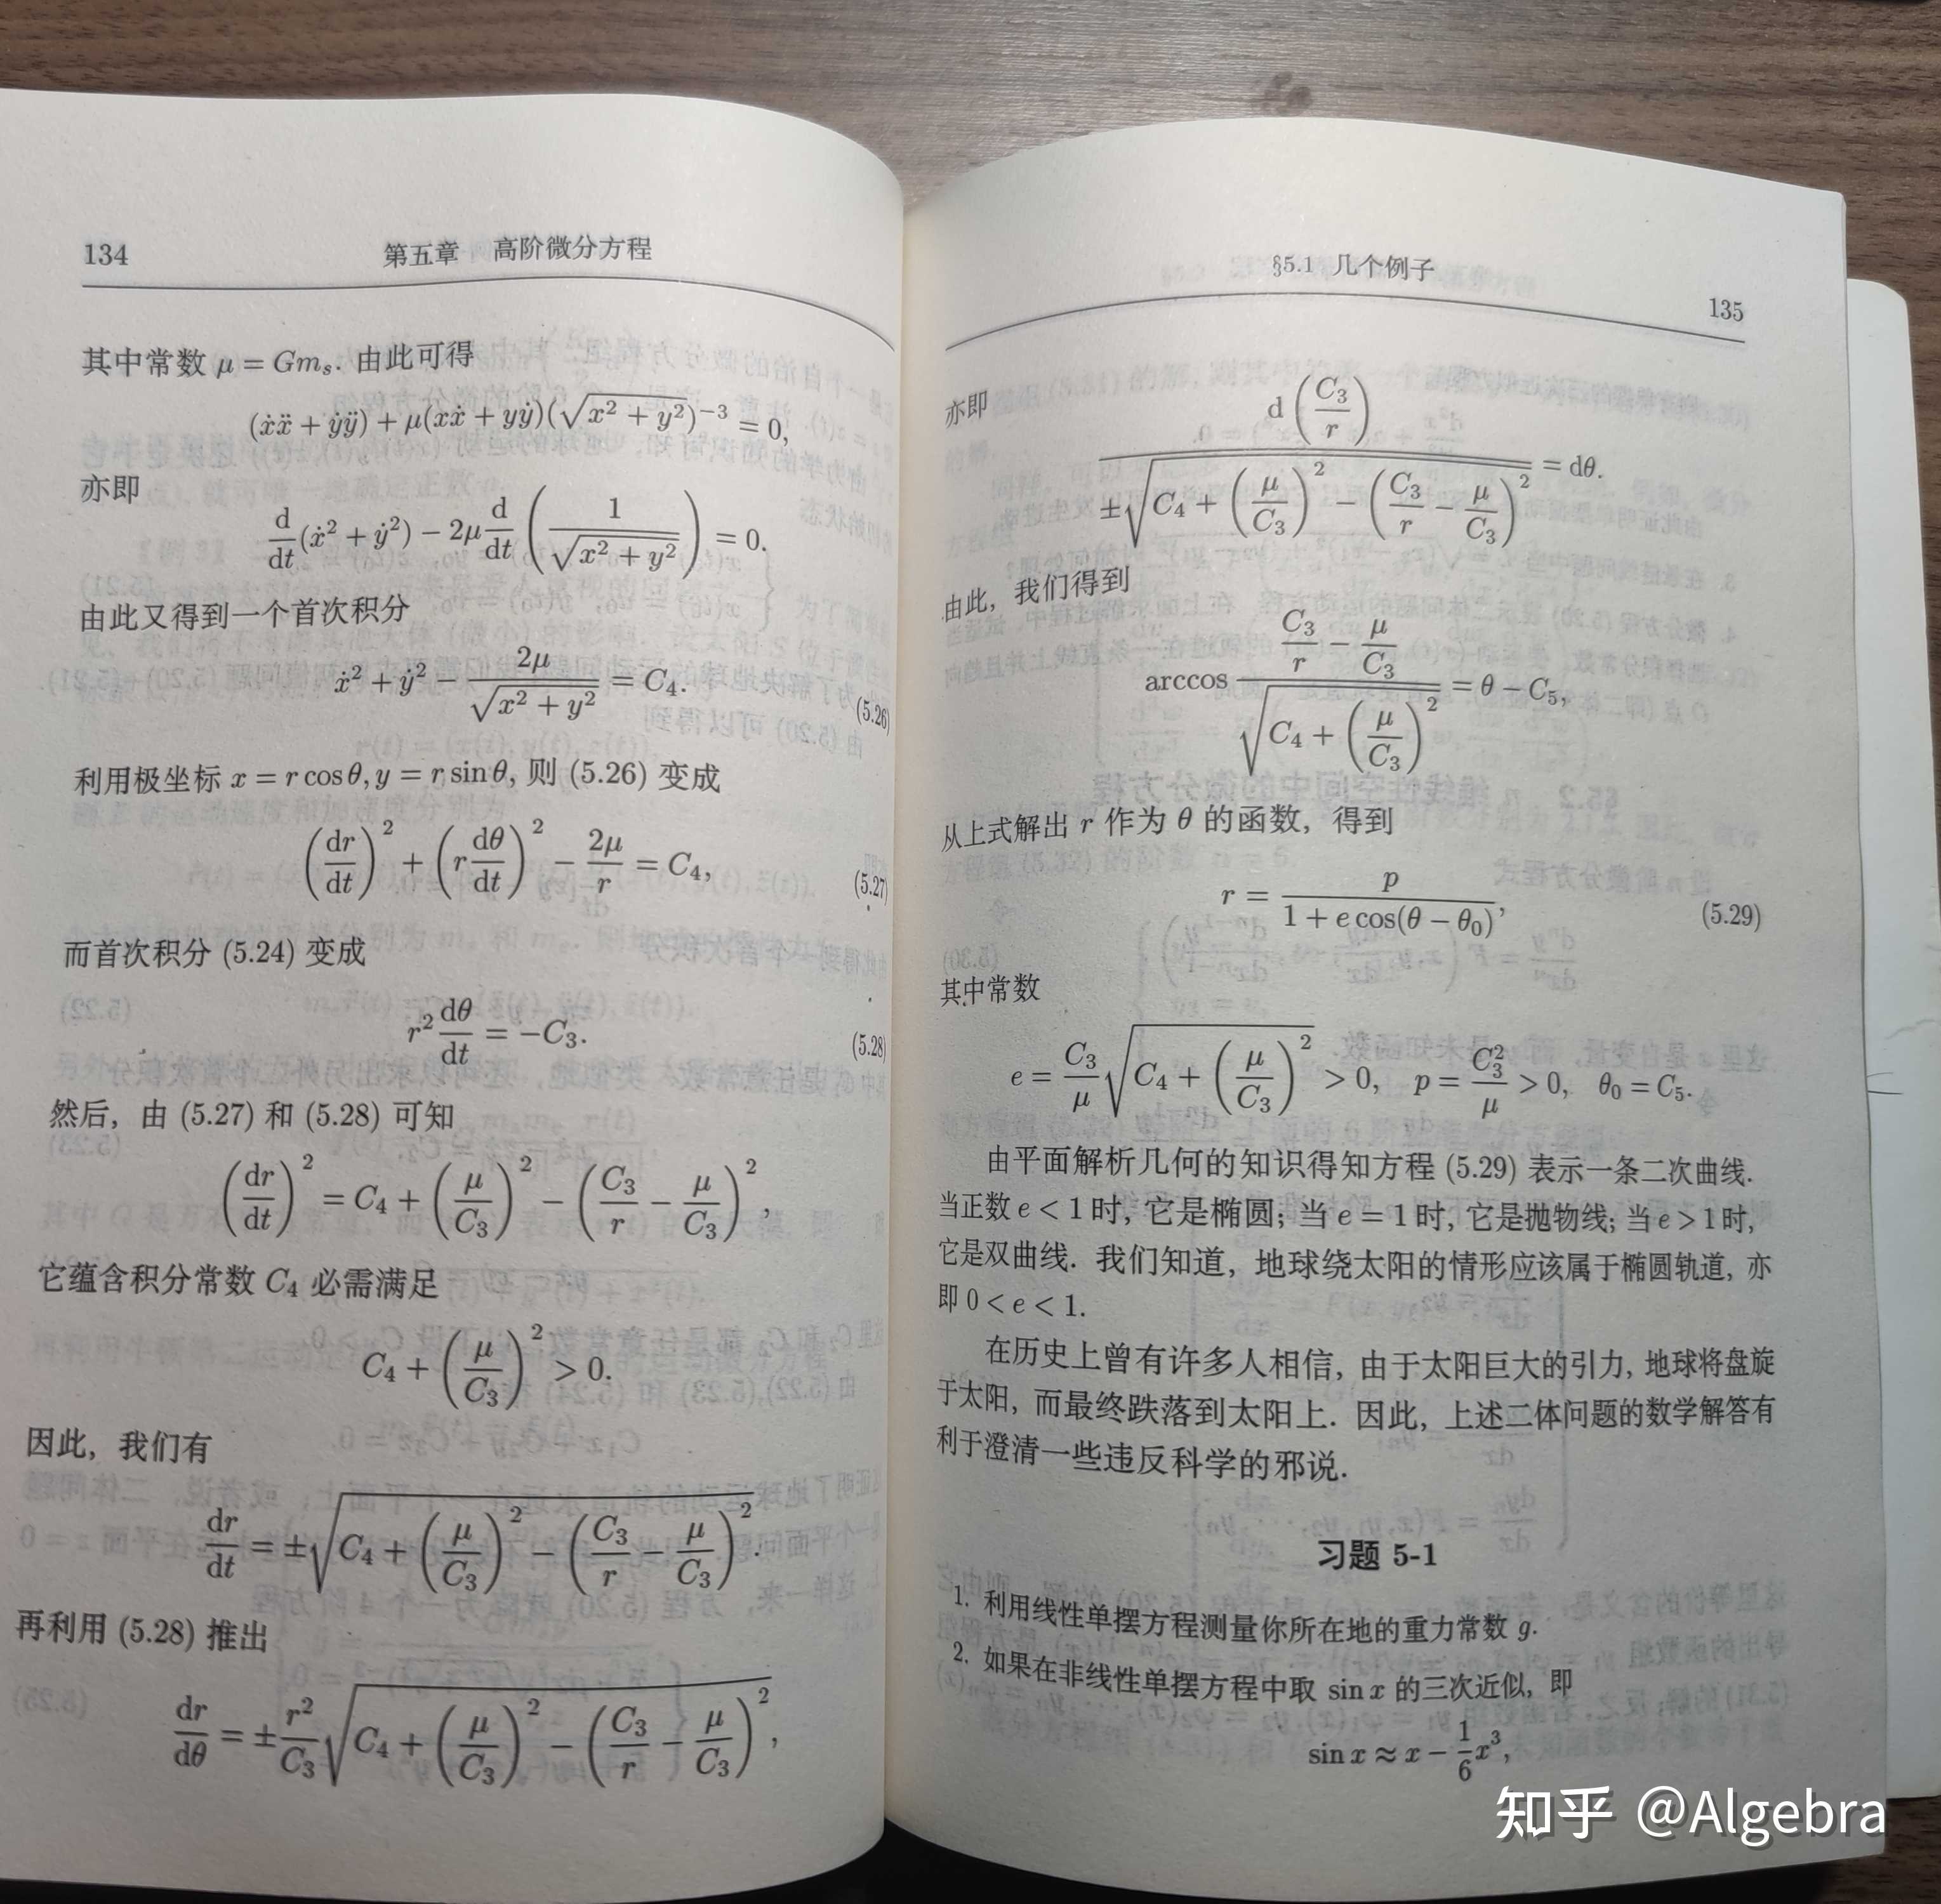 134 第五章 高阶微分方程
其中常数 μ = Gmₛ. 由此可得
(ẋẍ + ẏÿ) + μ(xẋ + yẏ)(√(x² + y²))⁻³ = 0,
亦即
d/dt(ẋ² + ẏ²) − 2μ d/dt (1/√(x² + y²)) = 0.
由此又得到一个首次积分
ẋ² + ẏ² − 2μ/√(x² + y²) = C₄. (5.26)
利用极坐标 x = r cos θ, y = r sin θ, 则 (5.26) 变成
(dr/dt)² + (r dθ/dt)² − 2μ/r = C₄, (5.27)
而首次积分 (5.24) 变成
r² dθ/dt = −C₃. (5.28)
然后, 由 (5.27) 和 (5.28) 可知
(dr/dt)² = C₄ + (μ/C₃)² − (C₃/r − μ/C₃)²,
它蕴含积分常数 C₄ 必需满足
C₄ + (μ/C₃)² > 0.
因此, 我们有
dr/dt = ±√(C₄ + (μ/C₃)² − (C₃/r − μ/C₃)²).
再利用 (5.28) 推出
dr/dθ = ± r²/C₃ √(C₄ + (μ/C₃)² − (C₃/r − μ/C₃)²),
§5.1 几个例子 135
亦即
d(C₃/r) / ±√(C₄ + (μ/C₃)² − (C₃/r − μ/C₃)²) = dθ.
由此, 我们得到
arccos (C₃/r − μ/C₃) / √(C₄ + (μ/C₃)²) = θ − C₅,
从上式解出 r 作为 θ 的函数, 得到
r = p / (1 + e cos(θ − θ₀)), (5.29)
其中常数
e = C₃/μ √(C₄ + (μ/C₃)²) > 0, p = C₃²/μ > 0, θ₀ = C₅.
由平面解析几何的知识得知方程 (5.29) 表示一条二次曲线.
当正数 e < 1 时, 它是椭圆; 当 e = 1 时, 它是抛物线; 当 e > 1 时,
它是双曲线. 我们知道, 地球绕太阳的情形应该属于椭圆轨道, 亦
即 0 < e < 1.
在历史上曾有许多人相信, 由于太阳巨大的引力, 地球将盘旋
于太阳, 而最终跌落到太阳上. 因此, 上述二体问题的数学解答有
利于澄清一些违反科学的邪说.
习题 5-1
1. 利用线性单摆方程测量你所在地的重力常数 g.
2. 如果在非线性单摆方程中取 sin x 的三次近似, 即
sin x ≈ x − 1/6 x³,
知乎 @Algebra